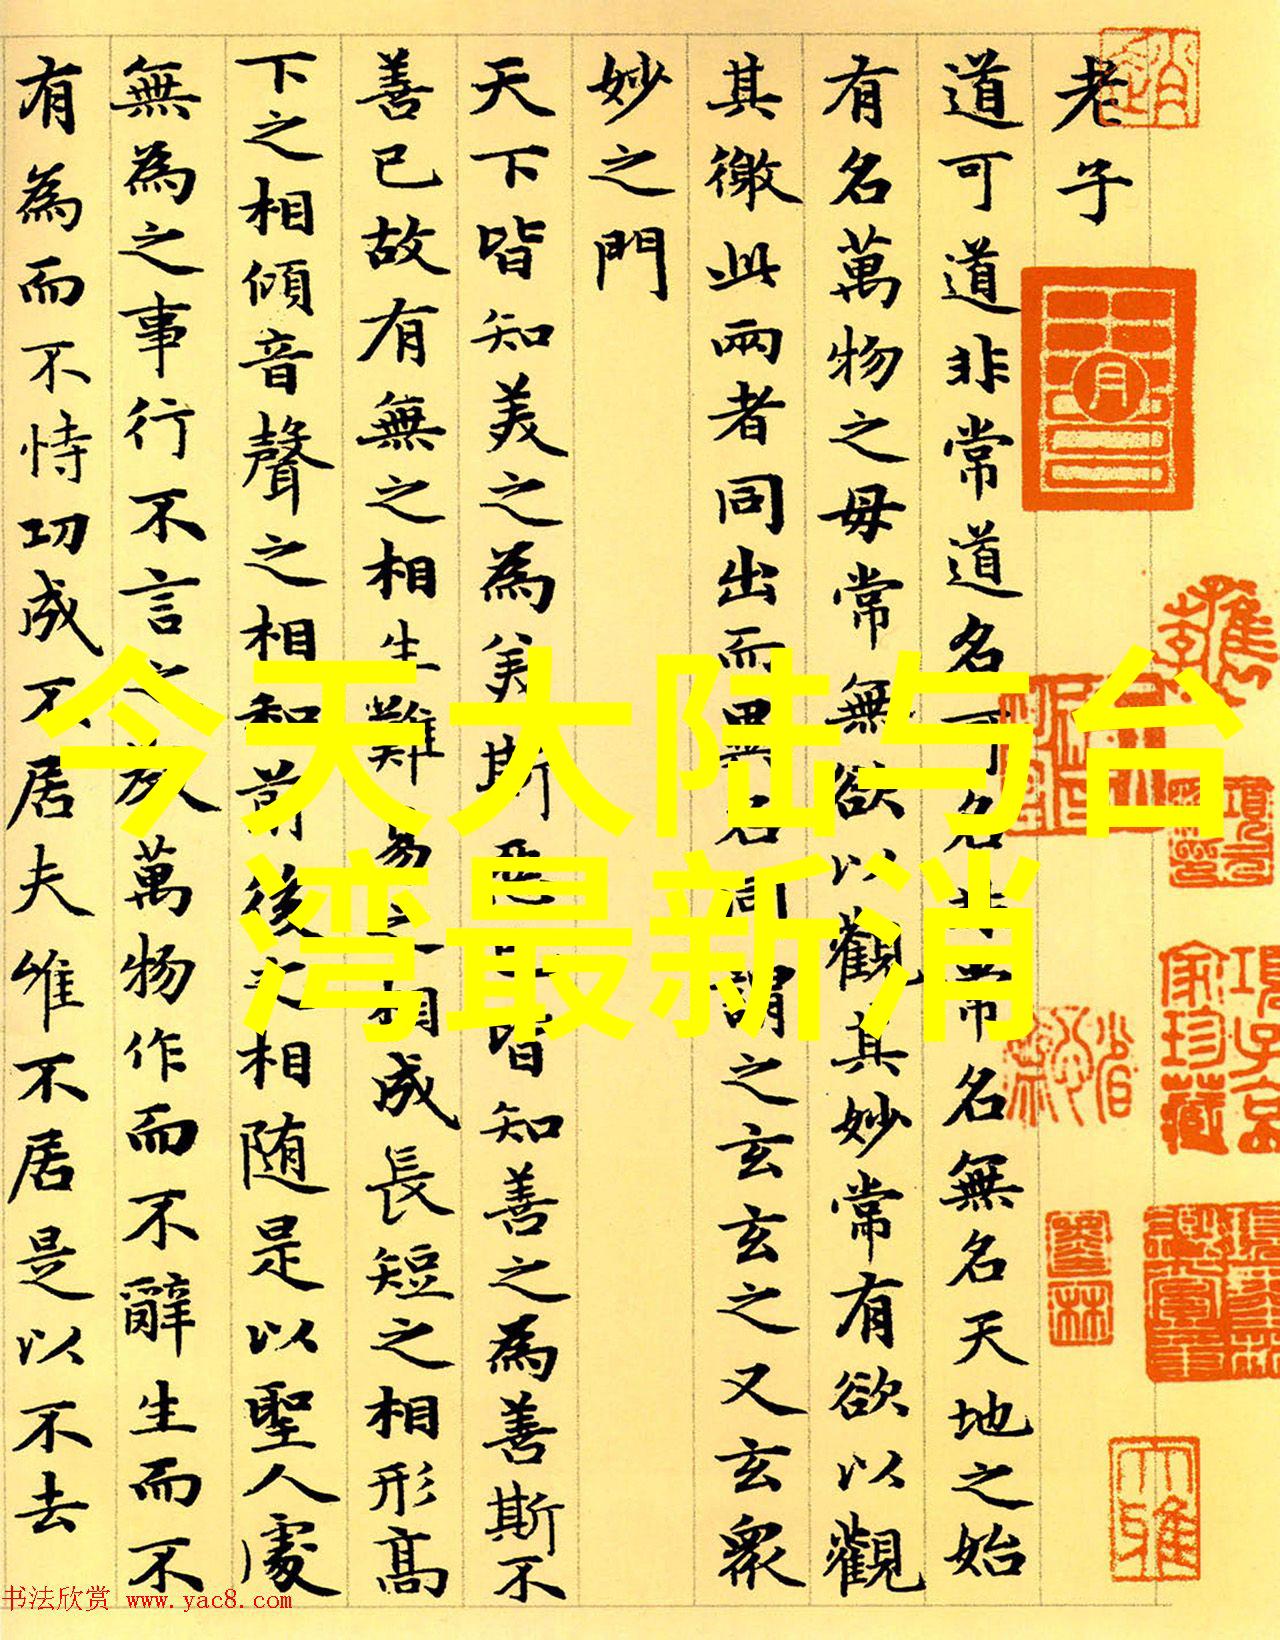 今天大陆与台
湾最新消
老子
道可道非常道名可名非常名無名天地之始
有名萬物之母常無欲以觀其妙常有欲以觀
其徼此兩者同出而異名同謂之玄玄之又玄眾
妙之門
天下皆知美之為美斯惡已皆知善之為善斯不
善已故有無之相生難易之相成長短之相形髙
下之相傾音聲之相和前後之相随是以聖人處
無為之事行不言之教萬物作而不辭生而不
有為而不恃功成不居夫惟不居是以不去
項子京
家珍藏
书法欣赏 www.yac8.com